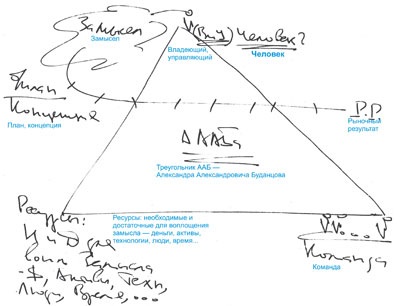 Замысел
Замысел
(ВиУ) Человек?
Владеющий,
управляющий
Человек
План
Концепция
План, концепция
Р.Р
Рыночный
результат
Δ ААБа
Треугольник ААБ —
Александра Александровича Буданцова
Ресурсы:
Н и Д для
Замысла
-$, Знания, Техн,
Люди, Время, ...
Ресурсы: необходимые и
достаточные для воплощения
замысла — деньги, активы,
технологии, люди, время...
Команда
Команда